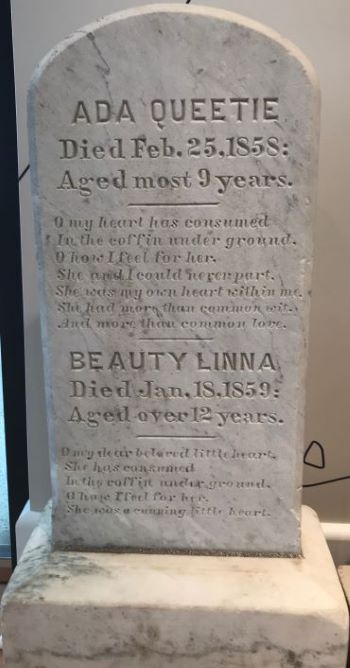 ADA QUEETIE
Died Feb. 25, 1858:
Aged most 9 years.
O my heart has consumed
In the coffin under ground.
O how I feel for her.
She and I could never part.
She was my own heart within me.
She had more than common wit.
And more than common love.
BEAUTY LINNA
Died Jan. 18, 1859:
Aged over 12 years.
O my dear beloved little heart.
She has consumed
In the coffin under ground.
O how I feel for her.
She was a cunning little heart.